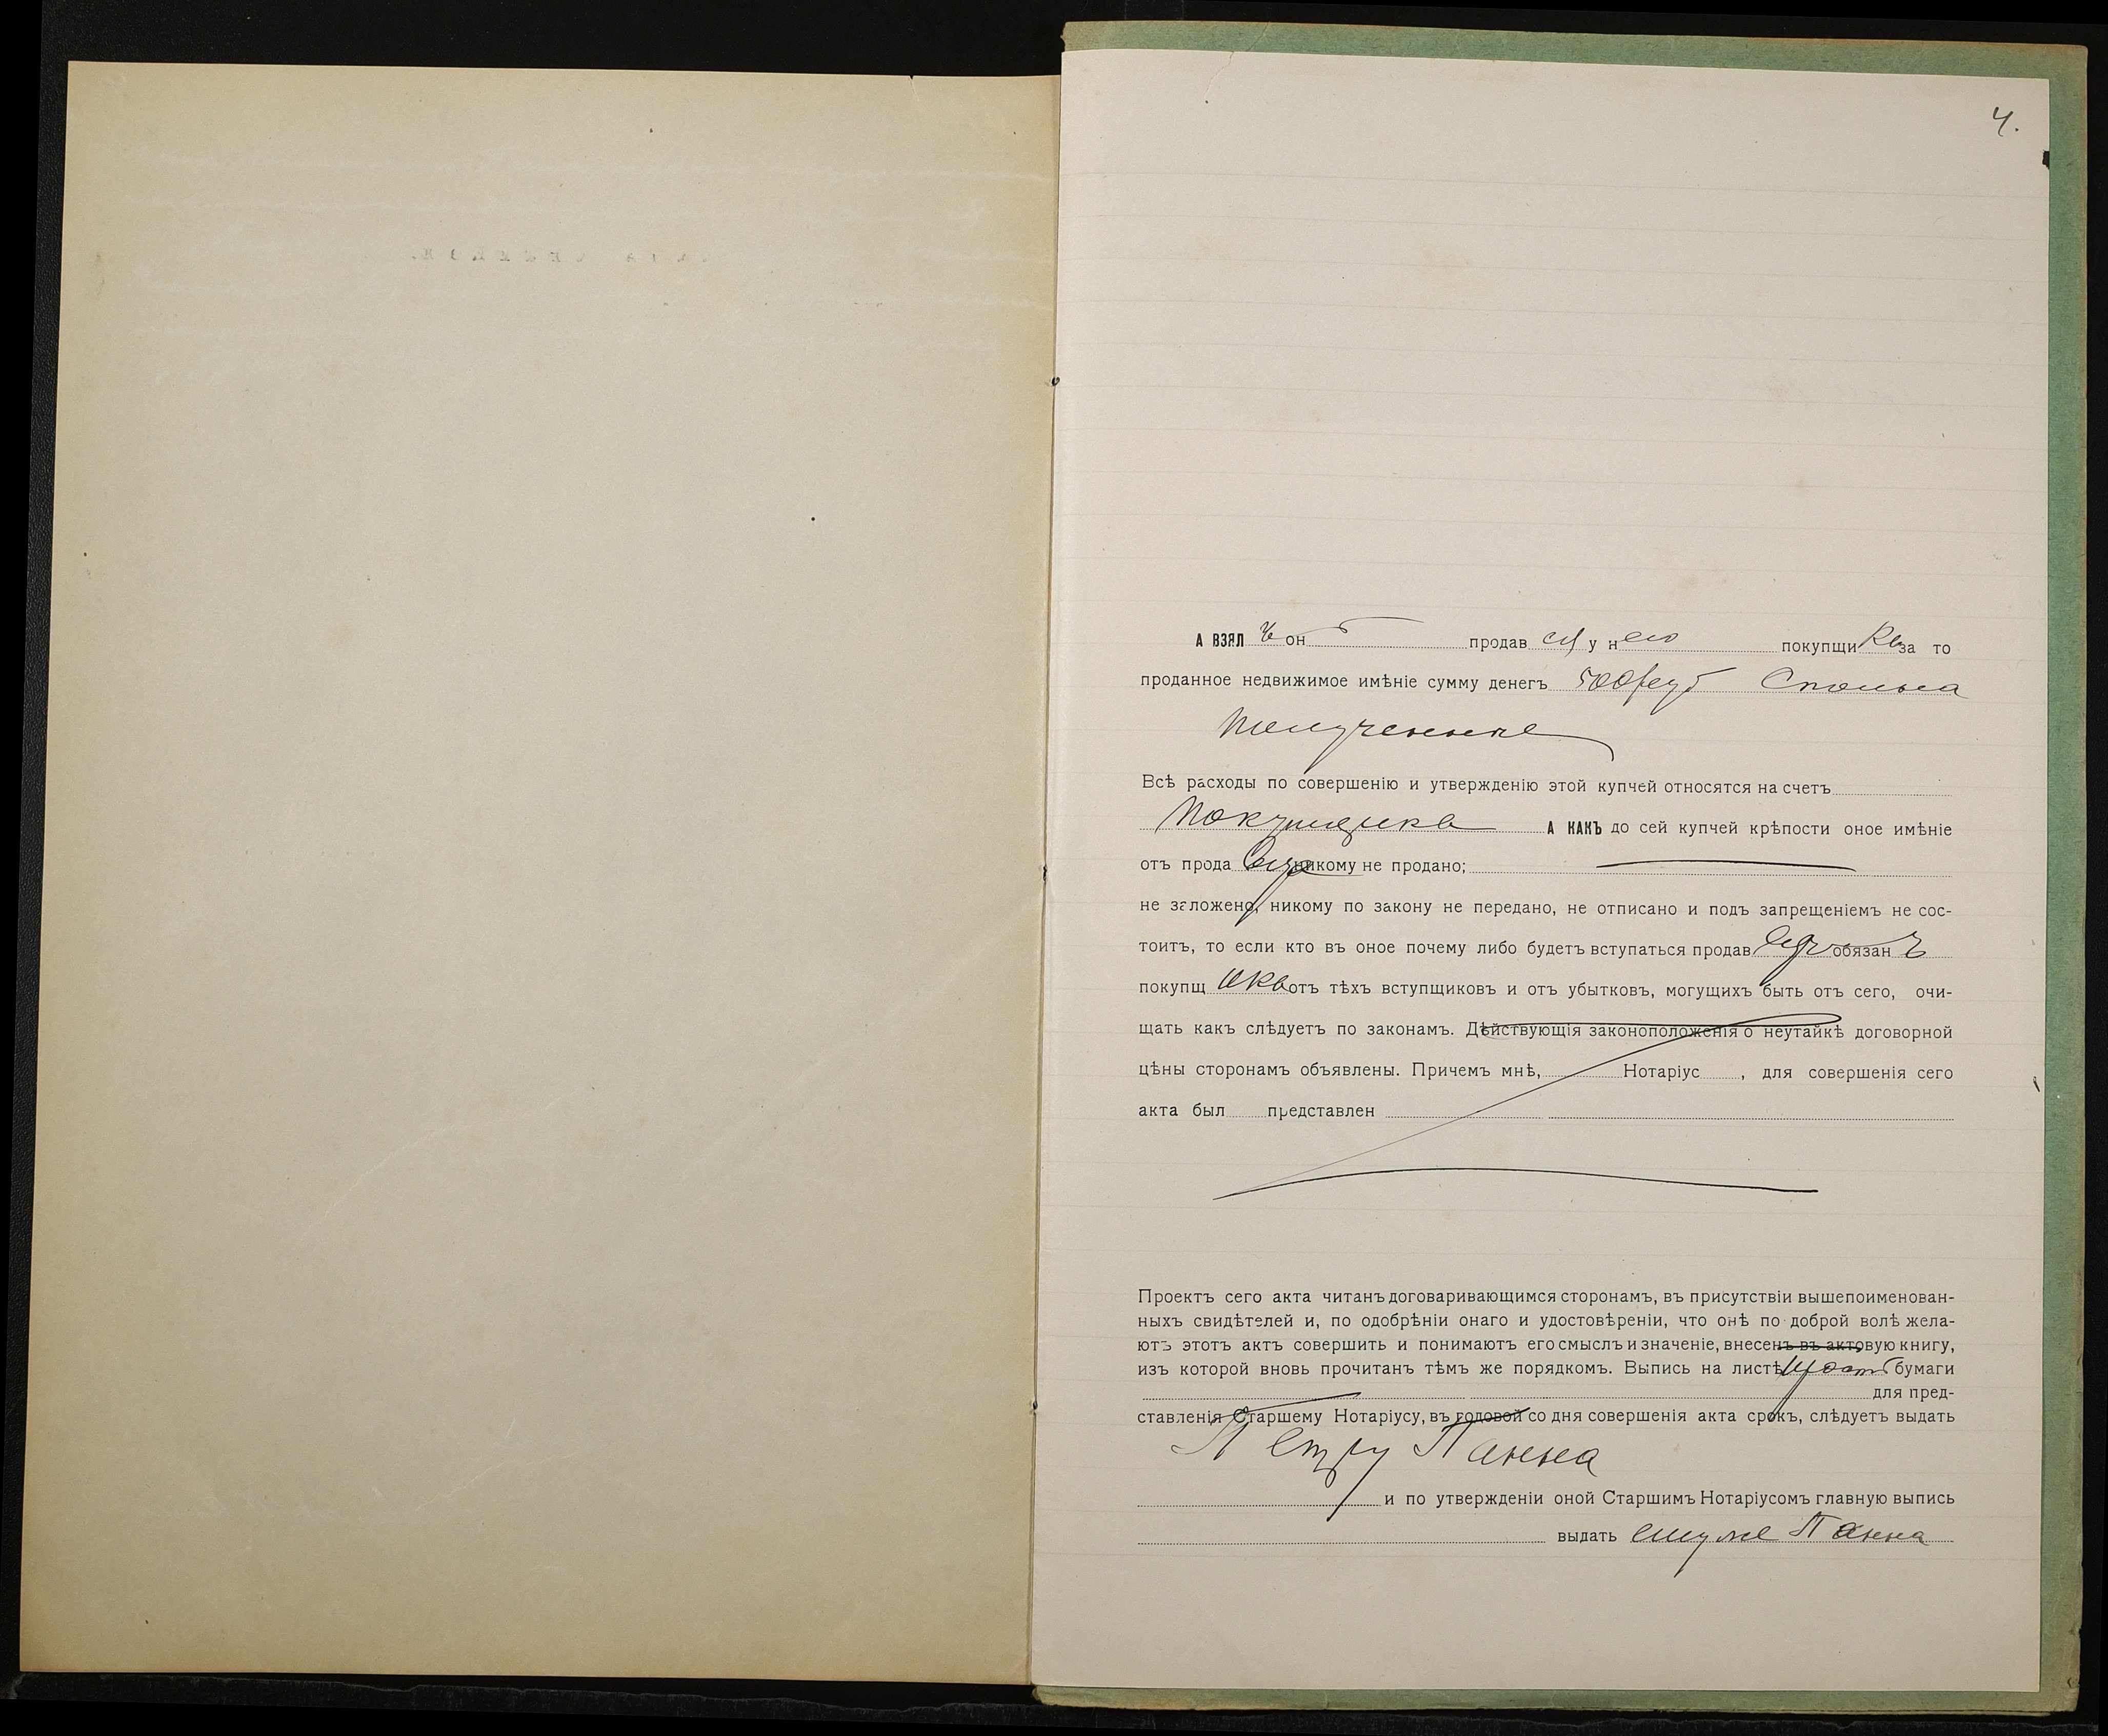 4.
А ВЗЯЛ ъ он ъ продав ец у н его покупщи ка за то
проданное недвижимое имѣніе сумму денегъ 500 руб Сполна
полученные
Всѣ расходы по совершенію и утвержденію этой купчей относятся на счетъ
Покупщика А КАКЪ до сей купчей крѣпости оное имѣніе
отъ прода вца никому не продано;
не заложено, никому по закону не передано, не отписано и подъ запрещеніемъ не сос-
тоитъ, то если кто въ оное почему либо будетъ вступаться продав ецъ обязан ъ
покупщ ика отъ тѣхъ вступщиковъ и отъ убытковъ, могущихъ быть отъ сего, очи-
щать какъ слѣдуетъ по законамъ. Дѣйствующія законоположенія о неутайкѣ договорной
цѣны сторонамъ объявлены. Причемъ мнѣ, Нотаріус , для совершенія сего
акта был представлен
Проектъ сего акта читанъ договаривающимся сторонамъ, въ присутствіи вышепоименован-
ныхъ свидѣтелей и, по одобрѣніи онаго и удостовѣреніи, что онѣ по доброй волѣ жела-
ютъ этотъ актъ совершить и понимаютъ его смыслъ и значеніе, внесенъ въ актовую книгу,
изъ которой вновь прочитанъ тѣмъ же порядкомъ. Выпись на листѣ бумаги
для пред-
ставленія Старшему Нотаріусу, въ годовой со дня совершенія акта срокъ, слѣдуетъ выдать
Петру Панна
и по утвержденіи оной Старшимъ Нотаріусомъ главную выпись
выдать ему же Панна